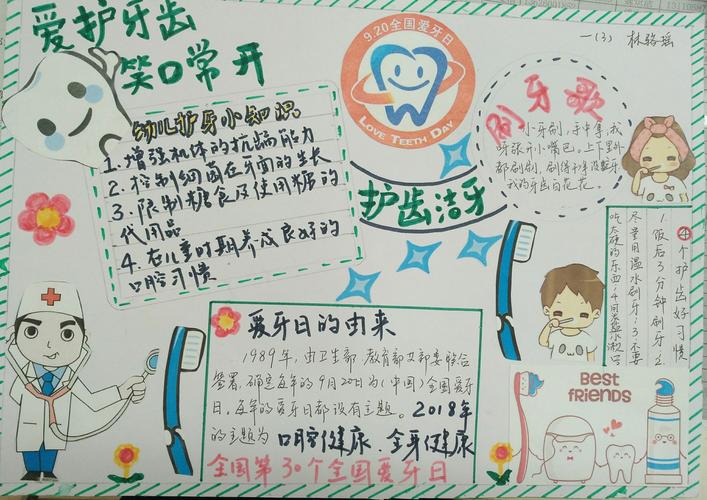 爱护牙齿
笑口常开
9.20全国爱牙日
LOVE TEETH DAY
一(3) 林骆瑶
幼儿护牙小知识
1.增强机体的抗龋能力
2.控制细菌在牙面的生长
3.限制糖食及使用糖的
代用品
4.在儿童时期养成良好的
口腔习惯
护齿洁牙
刷牙歌
小牙刷,手中拿,我
呀张开小嘴巴。上下里外
都刷刷,刷得干净没蛀牙
我的牙齿白花花。
4个护齿好习惯
1.饭后3分钟刷牙;2.
尽量用温水刷牙;3.不要
吃太硬的东西;4.用
爱牙日的由来
1989年,由卫生部 教育部
联合
签署,确定每年的9月20日为(中国)全国爱牙
日,每年的爱牙日都设有主题。2018年
的主题为 口腔健康 全身健康
全国第30个全国爱牙日
BEST
FRIENDS